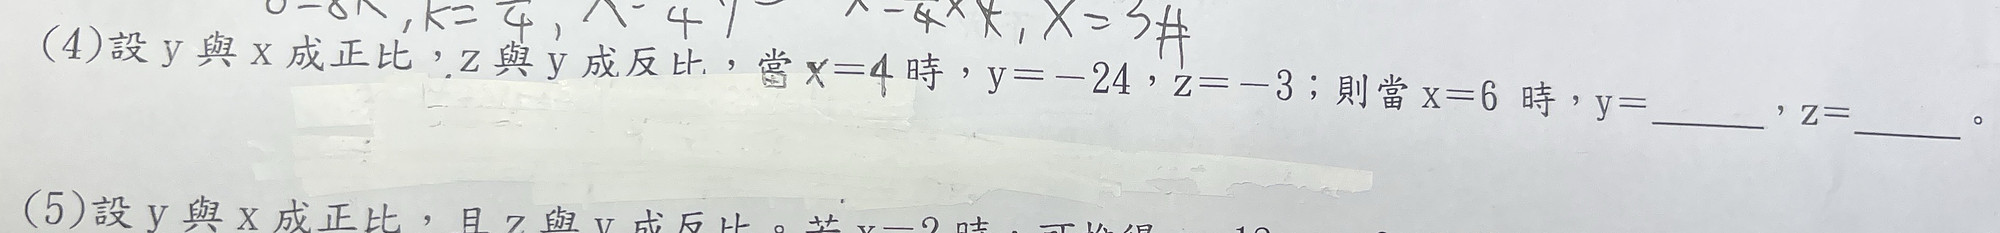 , k= 4, X=3#
(4)設 y 與 x 成正比,z 與 y 成反比,當 x=4 時,y=-24,z=-3;則當 x=6 時,y=_____,z=_____。
(5)設 y 與 x 成正比,且 z 與 y 成反比。若 x=2 時,可推得